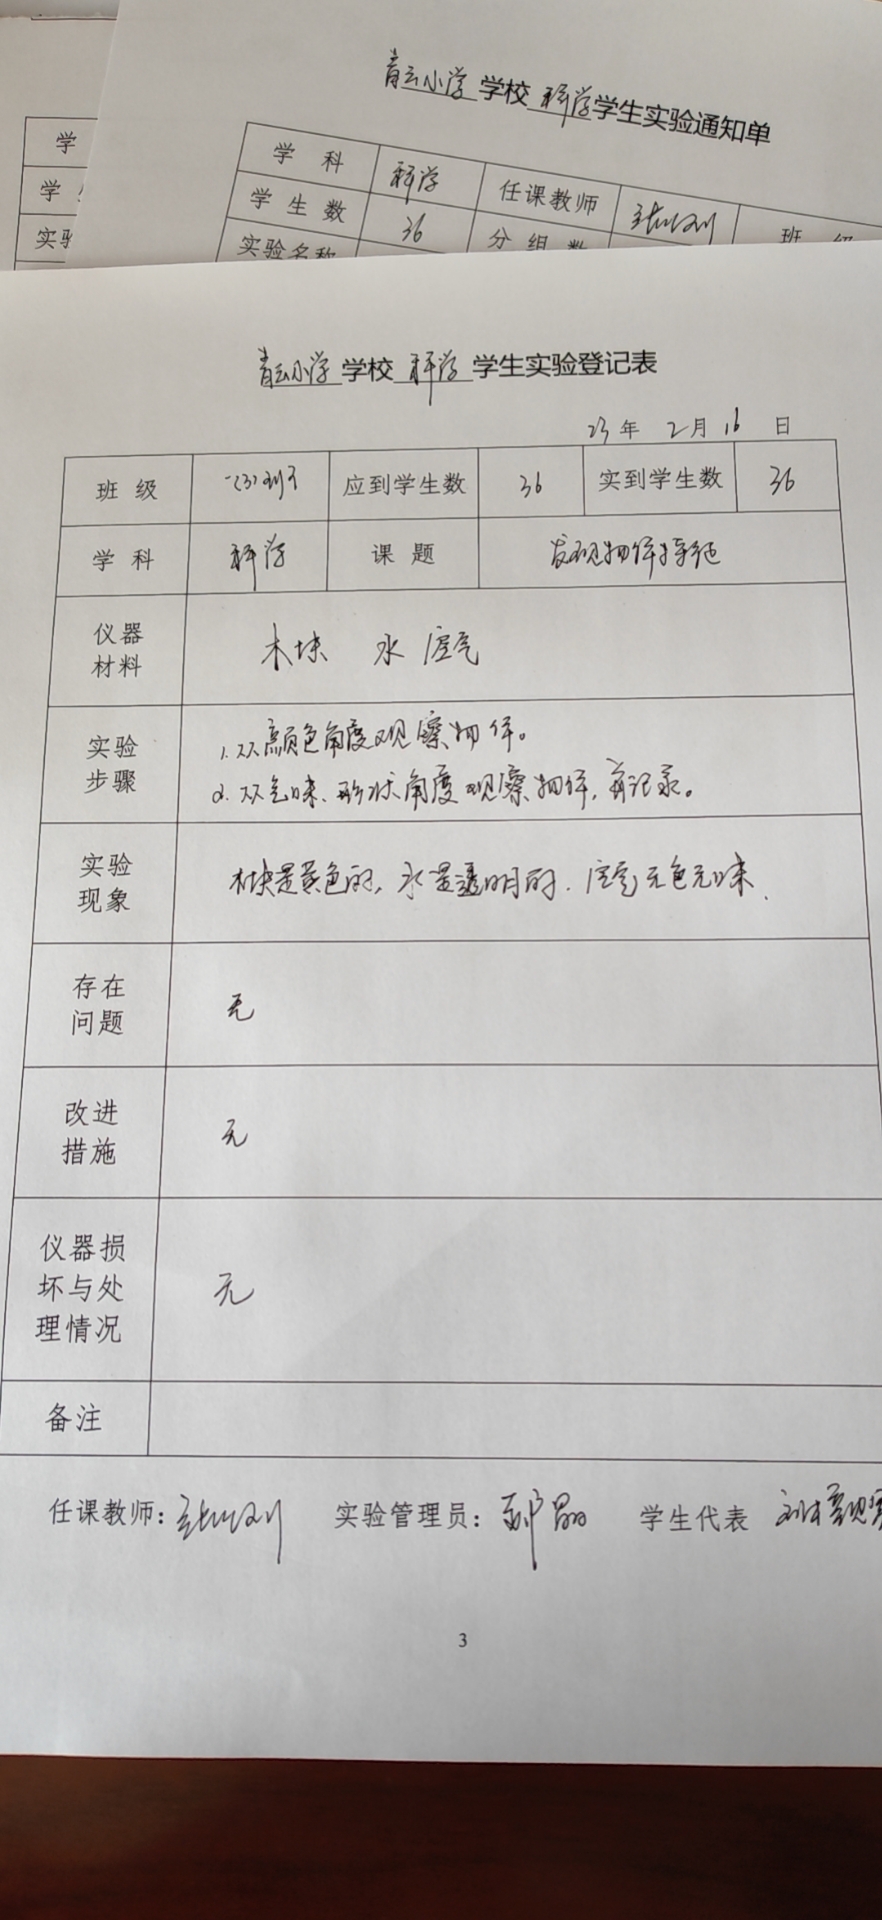 青云小学学校科学学生实验通知单
学
学
实验
学 科 科学 任课教师
学 生 数 36 分 组 数 班 级
实验名称
青云小学学校科学学生实验登记表
23年2月16日
班 级 一(3)班 应到学生数 36 实到学生数 36
学 科 科学 课 题 发现物体特征
仪器
材料
木块 水 空气
实验
步骤
1.从颜色角度观察物体。
2.从气味、形状角度观察物体,并记录。
实验
现象
木块是黄色的,水是透明的.空气无色无味.
存在
问题
无
改进
措施
无
仪器损
坏与处
理情况
无
备注
任课教师: 实验管理员: 学生代表
3